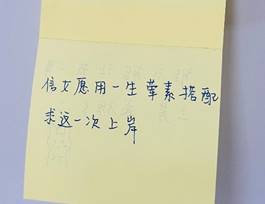 信女愿用一生荤素搭配
求这一次上岸